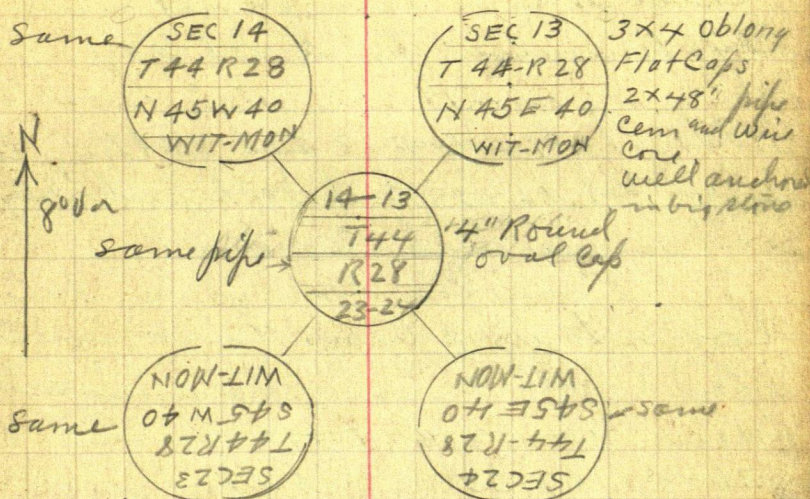 Same
SEC 14
T44 R28
N45W40
WIT-MON
SEC 13
T 44-R28
N45E 40
WIT-MON
3X4 Oblong
Flat Caps
2X48" pipe
Cem and Wire
Core
well anchored
in big stone
N
14-13
T44
R28
23-24
same pipe
4" Round
oval Cap
Same
SEC23
T44R28
S45W40
WIT-MON
SEC24
T44-R28
S45E40
WIT-MON
same